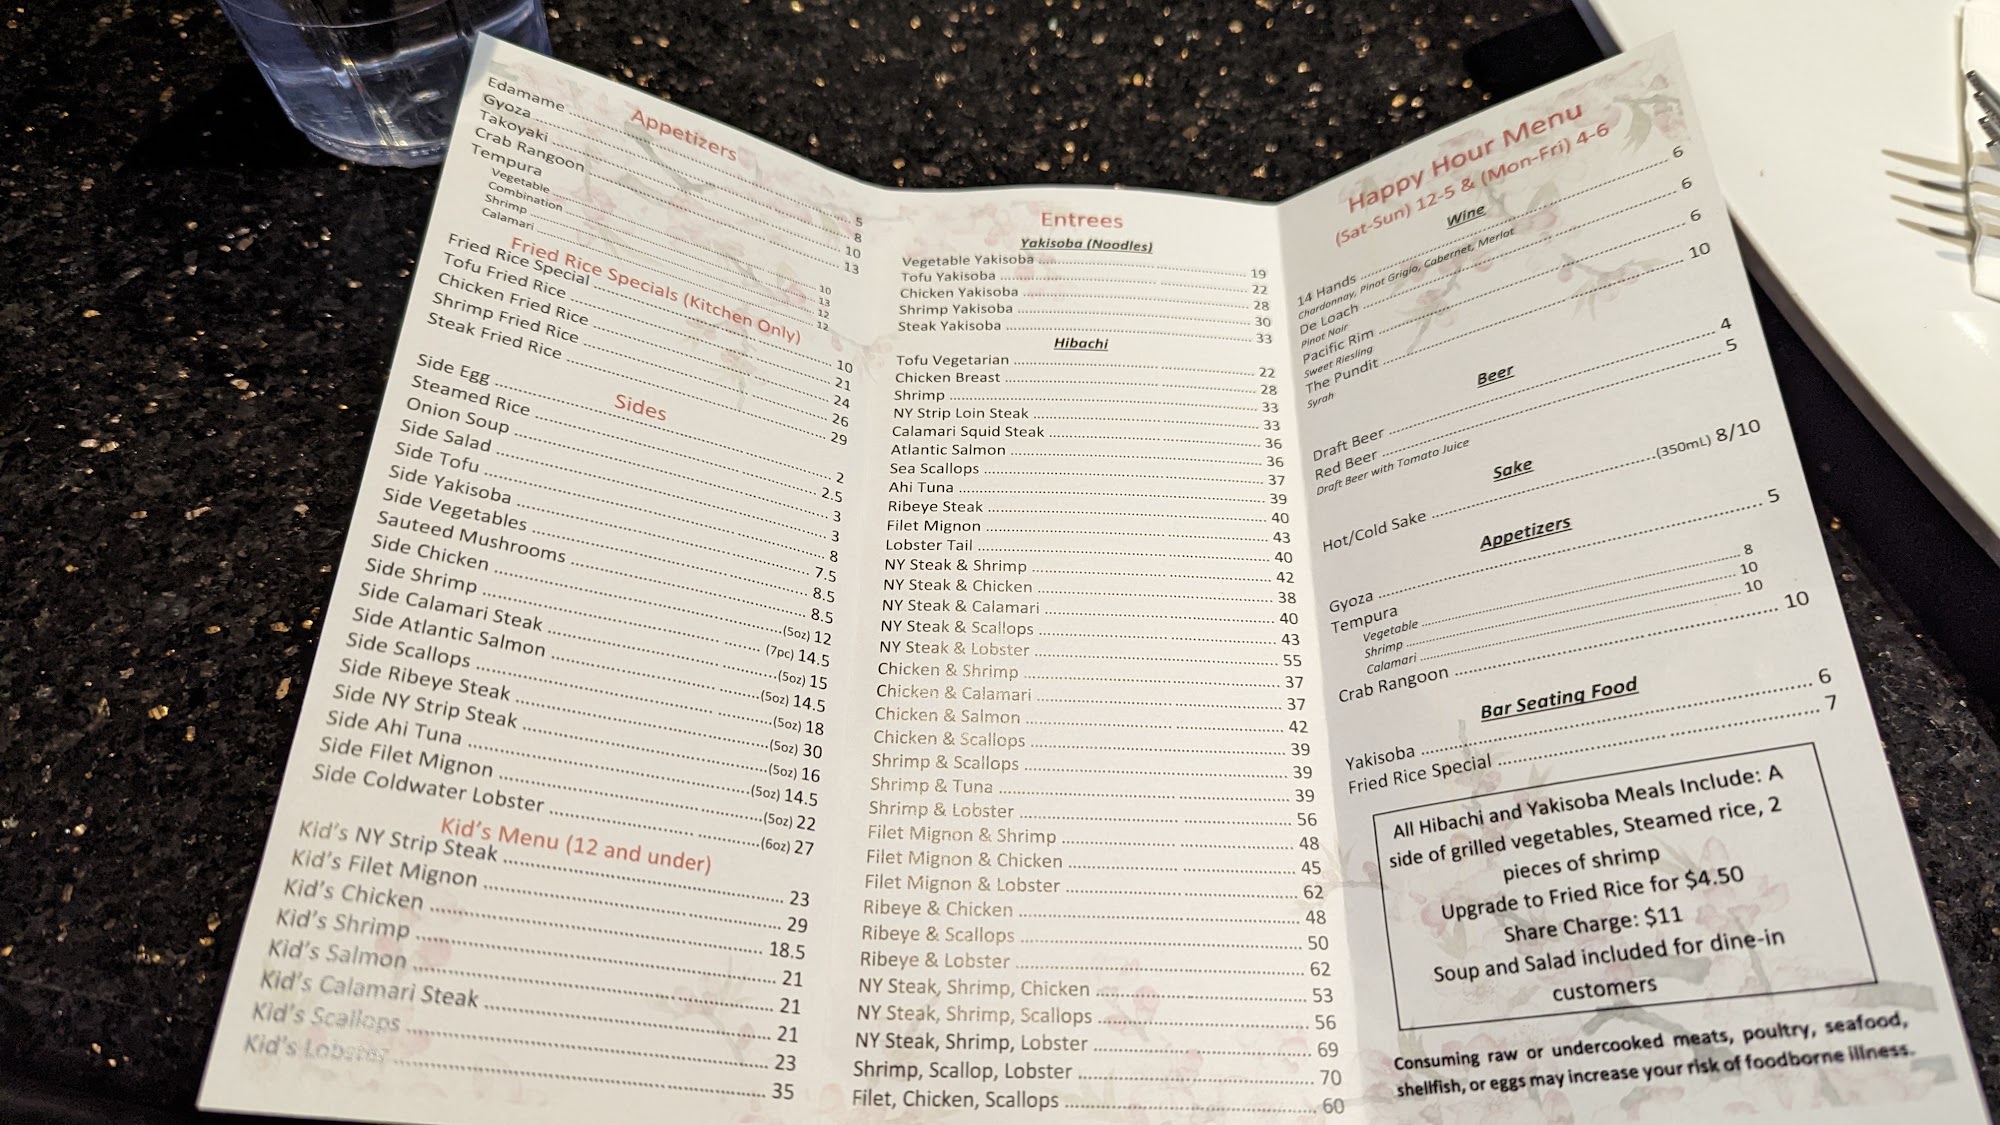 Appetizers
Edamame 5
Gyoza 8
Takoyaki 10
Crab Rangoon 13
Tempura
Vegetable 10
Combination 13
Shrimp 12
Calamari 12
Fried Rice Specials (Kitchen Only)
Fried Rice Special 10
Tofu Fried Rice 21
Chicken Fried Rice 24
Shrimp Fried Rice 26
Steak Fried Rice 29
Sides
Side Egg 2
Steamed Rice 2.5
Onion Soup 3
Side Salad 3
Side Tofu 8
Side Yakisoba 7.5
Side Vegetables 8.5
Sauteed Mushrooms 8.5
Side Chicken (5oz) 12
Side Shrimp (7pc) 14.5
Side Calamari Steak (5oz) 15
Side Atlantic Salmon (5oz) 14.5
Side Scallops (5oz) 18
Side Ribeye Steak (5oz) 30
Side NY Strip Steak (5oz) 16
Side Ahi Tuna (5oz) 14.5
Side Filet Mignon (5oz) 22
Side Coldwater Lobster (6oz) 27
Kid's Menu (12 and under)
Kid's NY Strip Steak 23
Kid's Filet Mignon 29
Kid's Chicken 18.5
Kid's Shrimp 21
Kid's Salmon 21
Kid's Calamari Steak 21
Kid's Scallops 23
Kid's Lobster 35
Entrees
Yakisoba (Noodles)
Vegetable Yakisoba 19
Tofu Yakisoba 22
Chicken Yakisoba 28
Shrimp Yakisoba 30
Steak Yakisoba 33
Hibachi
Tofu Vegetarian 22
Chicken Breast 28
Shrimp 33
NY Strip Loin Steak 33
Calamari Squid Steak 36
Atlantic Salmon 36
Sea Scallops 37
Ahi Tuna 39
Ribeye Steak 40
Filet Mignon 43
Lobster Tail 40
NY Steak & Shrimp 42
NY Steak & Chicken 38
NY Steak & Calamari 40
NY Steak & Scallops 43
NY Steak & Lobster 55
Chicken & Shrimp 37
Chicken & Calamari 37
Chicken & Salmon 42
Chicken & Scallops 39
Shrimp & Scallops 39
Shrimp & Tuna 39
Shrimp & Lobster 56
Filet Mignon & Shrimp 48
Filet Mignon & Chicken 45
Filet Mignon & Lobster 62
Ribeye & Chicken 48
Ribeye & Scallops 50
Ribeye & Lobster 62
NY Steak, Shrimp, Chicken 53
NY Steak, Shrimp, Scallops 56
NY Steak, Shrimp, Lobster 69
Shrimp, Scallop, Lobster 70
Filet, Chicken, Scallops 60
Happy Hour Menu
(Sat-Sun) 12-5 & (Mon-Fri) 4-6
Wine
14 Hands 6
Chardonnay, Pinot Grigio, Cabernet, Merlot
De Loach 6
Pinot Noir
Pacific Rim 6
Sweet Riesling
The Pundit 10
Syrah
Beer
Draft Beer 4
Red Beer 5
Draft Beer with Tomato Juice
Sake
Hot/Cold Sake (350mL) 8/10
Appetizers
Gyoza 5
Tempura
Vegetable 8
Shrimp 10
Calamari 10
Crab Rangoon 10
Bar Seating Food
Yakisoba 6
Fried Rice Special 7
All Hibachi and Yakisoba Meals Include: A
side of grilled vegetables, Steamed rice, 2
pieces of shrimp
Upgrade to Fried Rice for $4.50
Share Charge: $11
Soup and Salad included for dine-in
customers
Consuming raw or undercooked meats, poultry, seafood,
shellfish, or eggs may increase your risk of foodborne illness.